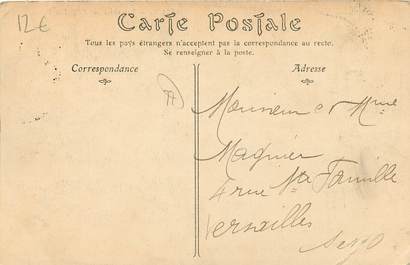 12€
Carte Postale
Tous les pays étrangers n'acceptent pas la correspondance au recto.
Se renseigner à la poste.
Correspondance
Adresse
Monsieur et Mme
Magnier
4 rue Ste Famille
Versailles